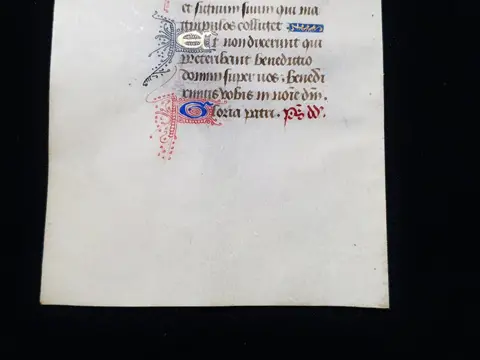 et sinum suum qui ma
nipulos colliget
Et non dixerunt qui
preteribant benedictio
domini super uos. benedi
ximus vobis in noie dni.
Gloria patri. ps dd.